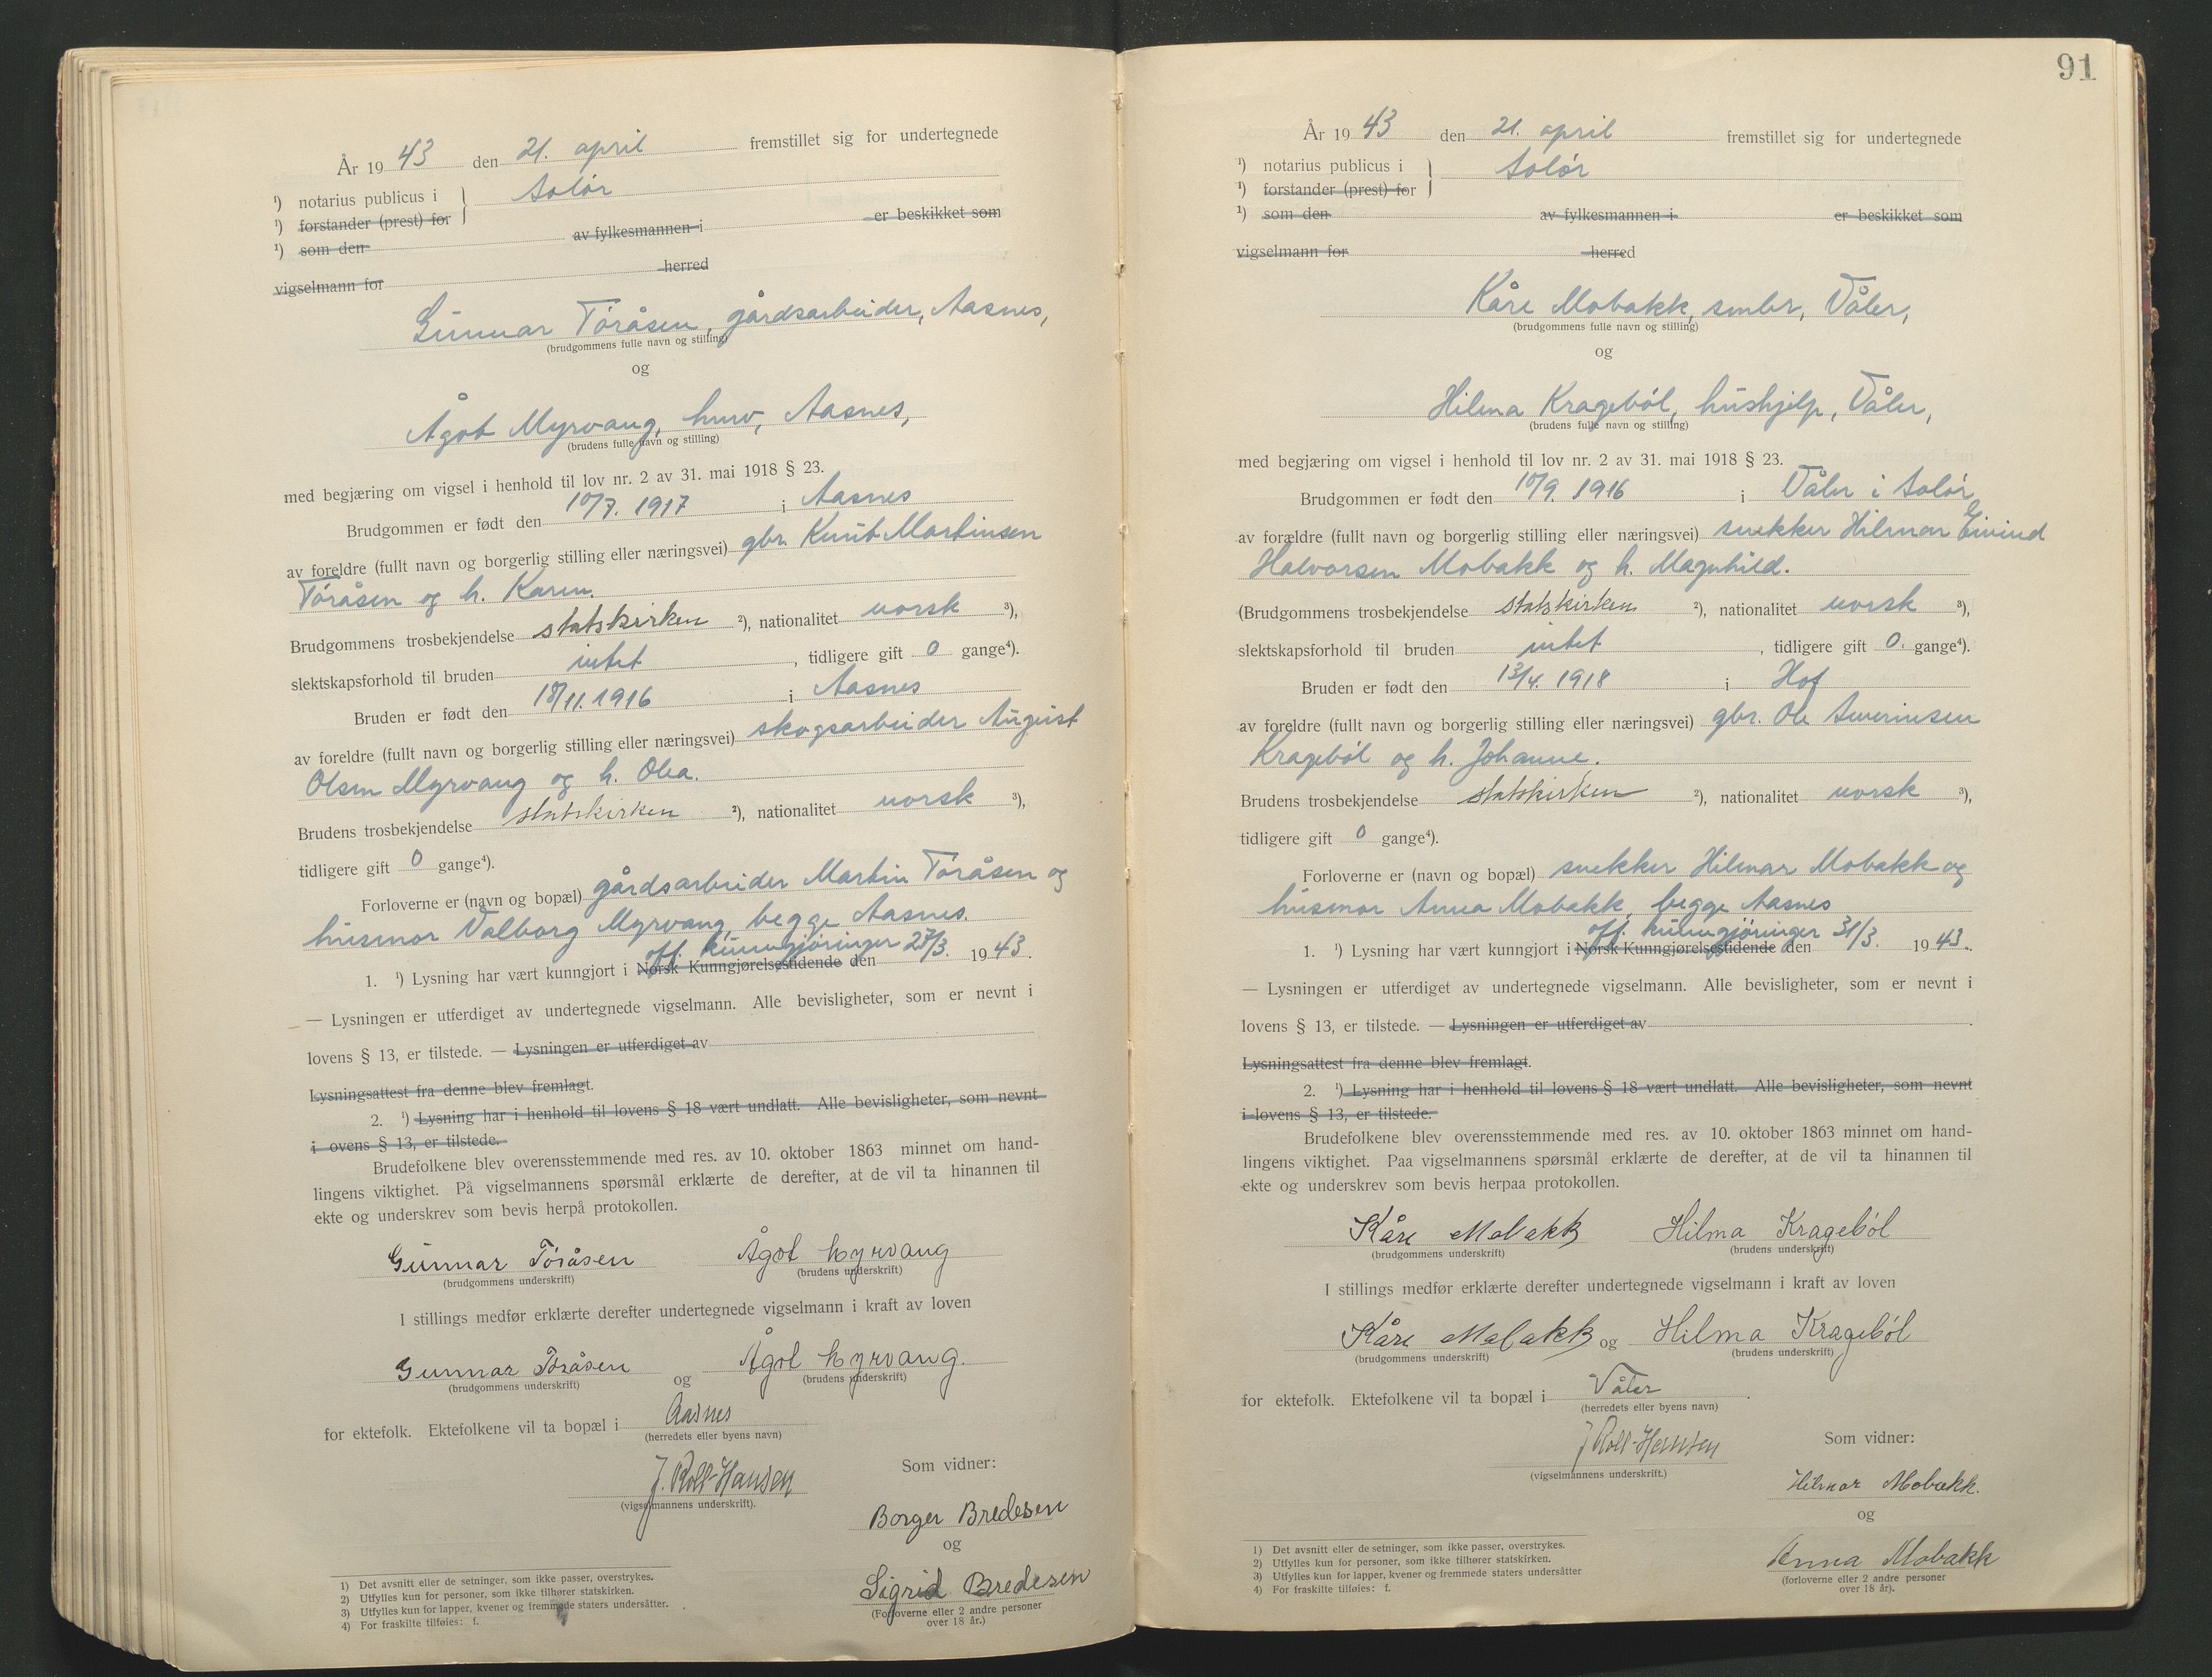 År 19 43 den 21. april fremstillet sig for undertegnede
¹) notarius publicus i } Solør
¹) forstander (prest) for
¹) som den av fylkesmannen i er beskikket som
vigselmann for herred
Gunnar Töråsen, gårdsarbeider, Aasnes,
(brudgommens fulle navn og stilling)
og
Ågot Myrvang, husv, Aasnes,
(brudens fulle navn og stilling)
med begjæring om vigsel i henhold til lov nr. 2 av 31. mai 1918 § 23.
Brudgommen er født den 10/7. 1917 i Aasnes
av foreldre (fullt navn og borgerlig stilling eller næringsvei) gbr. Knut Martinsen
Töråsen og h. Karen.
Brudgommens trosbekjendelse statskirken ²), nationalitet norsk ³),
slektskapsforhold til bruden intet , tidligere gift 0 gange⁴).
Bruden er født den 18/11. 1916 i Aasnes
av foreldre (fullt navn og borgerlig stilling eller næringsvei) skogsarbeider August
Olsen Myrvang og h. Olea.
Brudens trosbekjendelse statskirken ²), nationalitet norsk ³),
tidligere gift 0 gange⁴).
Forloverne er (navn og bopæl) gårdsarbeider Martin Töråsen og
husmor Valborg Myrvang, begge Aasnes.
off. kunngjøringer
1. ¹) Lysning har vært kunngjort i Norsk Kunngjørelsestidende den 27/3. 1943.
— Lysningen er utferdiget av undertegnede vigselmann. Alle bevisligheter, som er nevnt i
lovens § 13, er tilstede. — Lysningen er utferdiget av
Lysningsattest fra denne blev fremlagt.
2. ¹) Lysning har i henhold til lovens § 18 vært undlatt. Alle bevisligheter, som nevnt
i ovens § 13, er tilstede.
Brudefolkene blev overensstemmende med res. av 10. oktober 1863 minnet om hand-
lingens viktighet. På vigselmannens spørsmål erklærte de derefter, at de vil ta hinannen til
ekte og underskrev som bevis herpå protokollen.
Gunnar Töråsen Ågot Myrvang
(brudgommens underskrift) (brudens underskrift)
I stillings medfør erklærte derefter undertegnede vigselmann i kraft av loven
Gunnar Töråsen og Ågot Myrvang.
(brudgommens underskrift) (brudens underskrift)
for ektefolk. Ektefolkene vil ta bopæl i Aasnes
(herredets eller byens navn)
J. Roll-Hansen
(vigselmannens underskrift).
Som vidner:
Borger Bredesen
og
Sigrid Bredesen
(Forloverne eller 2 andre personer
over 18 år.)
1) Det avsnitt eller de setninger, som ikke passer, overstrykes.
2) Utfylles kun for personer, som ikke tilhører statskirken.
3) Utfylles kun for lapper, kvener og fremmede staters undersåtter.
4) For fraskilte tilføies: f.
91
År 19 43 den 21. april fremstillet sig for undertegnede
¹) notarius publicus i } Solør
¹) forstander (prest) for
¹) som den av fylkesmannen i er beskikket som
vigselmann for herred
Kåre Mobakk, småbr, Våler,
(brudgommens fulle navn og stilling)
og
Hilma Kragebøl, hushjelp, Våler,
(brudens fulle navn og stilling)
med begjæring om vigsel i henhold til lov nr. 2 av 31. mai 1918 § 23.
Brudgommen er født den 10/9. 1916 i Våler i Solør
av forældre (fullt navn og borgerlig stilling eller næringsvei) snekker Hilmar Eivind
Halvorsen Mobakk og h. Magnhild.
(Brudgommens trosbekjendelse statskirken ²), nationalitet norsk ³),
slektskapsforhold til bruden intet , tidligere gift 0. gange⁴).
Bruden er født den 13/4. 1918 i Hof
av foreldre (fullt navn og borgerlig stilling eller næringsvei) gbr. Ole Severinsen
Kragebøl og h. Johanne.
Brudens trosbekjendelse statskirken ²), nationalitet norsk ³),
tidligere gift 0 gange⁴).
Forloverne er (navn og bopæl) snekker Hilmar Mobakk og
husmor Anna Mobakk, begge Aasnes
off. kunngjøringer
1. ¹) Lysning har vært kunngjort i Norsk Kunngjørelsestidende den 31/3. 1943.
— Lysningen er utferdiget av undertegnede vigselmann. Alle bevisligheter, som er nevnt i
lovens § 13, er tilstede. — Lysningen er utferdiget av .
Lysningsattest fra denne blev fremlagt.
2. ¹) Lysning har i henhold til lovens § 18 vært undlatt. Alle bevisligheter, som nevnt
i lovens § 13, er tilstede.
Brudefolkene blev overensstemmende med res. av 10. oktober 1863 minnet om hand-
lingens viktighet. Paa vigselmannens spørsmål erklærte de derefter, at de vil ta hinannen til
ekte og underskrev som bevis herpaa protokollen.
Kåre Mobakk Hilma Kragebøl
(brudgommens underskrift) (brudens underskrift)
I stillings medfør erklærte derefter undertegnede vigselmann i kraft av loven
Kåre Mobakk og Hilma Kragebøl
(brudgommens underskrift) (brudens underskrift)
for ektefolk. Ektefolkene vil ta bopæl i Våler .
(herredets eller byens navn)
J Roll-Hansen
(vigselmannens underskrift.)
Som vidner:
Hilmar Mobakk.
og
Anna Mobakk
(forloverne eller 2 andre personer
over 18 år).
1) Det avsnitt eller de setninger, som ikke passer, overstrykes.
2) Utfylles kun for personer, som ikke tilhører statskirken.
3) Utfylles kun for lapper, kvener og fremmede staters undersåtter
4) For fraskilte tilføies: f.